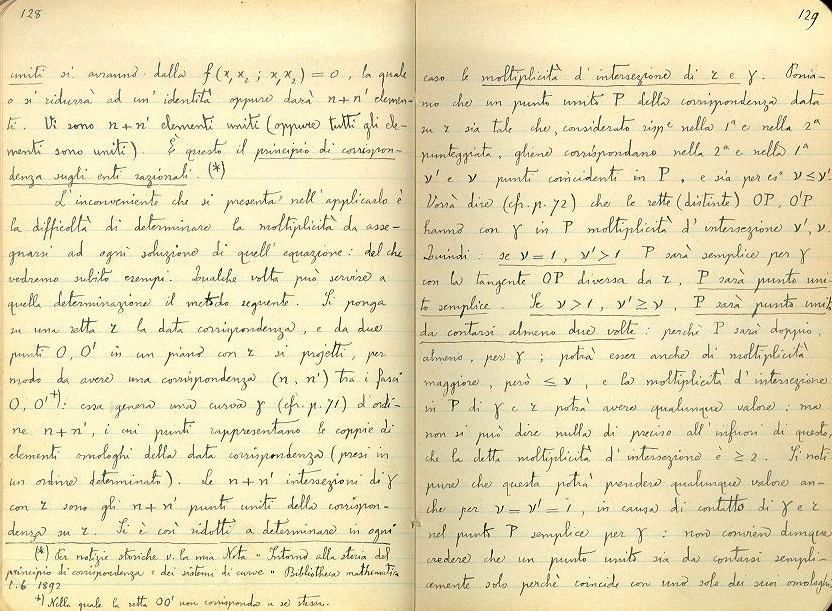 128
uniti si avranno dalla f(x₁x₂ ; x₁x₂) = 0, la quale
o si ridurrà ad un' identità oppure darà n+n' elemen-
ti. Vi sono n+n' elementi uniti (oppure tutti gli ele-
menti sono uniti). È questo il principio di corrispon-
denza sugli enti razionali. (*)
L'inconveniente che si presenta nell'applicarlo è
la difficoltà di determinare la moltiplicità da asse-
gnarsi ad ogni soluzione di quell'equazione: del che
vedremo subito esempi. Qualche volta può servire a
quella determinazione il metodo seguente. Si ponga
su una retta r la data corrispondenza, e da due
punti O, O' in un piano con r si projetti, per
modo da avere una corrispondenza (n, n') tra i fasci
O, O' ⁺⁾: essa genera una curva γ (cfr. p. 71) d'ordi-
ne n+n', i cui punti rappresentano le coppie di
elementi omologhi della data corrispondenza (presi in
un ordine determinato). Le n+n' intersezioni di γ
con r sono gli n+n' punti uniti della corrispon-
denza su r. Si è così ridotti a determinare in ogni
(*) Per notizie storiche v. la mia Nota " Intorno alla storia del
principio di corrispondenza e dei sistemi di curve " Bibliotheca mathematica
t. 6 1892
⁺⁾ Nella quale la retta OO' non corrisponda a sè stessa.
129
caso le moltiplicità d'intersezione di r e γ. Ponia-
mo che un punto unito P della corrispondenza data
su r sia tale che, considerato rispᵉ nella 1ª e nella 2ª
punteggiata, gliene corrispondano nella 2ª e nella 1ª
ν' e ν punti coincidenti in P, e sia per esº ν ≤ ν'.
Vorrà dire (cfr. p. 72) che le rette (distinte) OP, O'P
hanno con γ in P moltiplicità d'intersezione ν', ν.
Quindi: se ν = 1, ν' > 1 P sarà semplice per γ
con la tangente OP diversa da r, P sarà punto uni-
to semplice. Se ν > 1, ν' ≥ ν, P sarà punto unito
da contarsi almeno due volte: perchè P sarà doppio,
almeno, per γ; potrà esser anche di moltiplicità
maggiore, però ≤ ν, e la moltiplicità d'intersezione
in P di γ e r potrà avere qualunque valore: ma
non si può dire nulla di preciso all'infuori di questo,
che la detta moltiplicità d'intersezione è ≥ 2. Si noti
pure che questa potrà prendere qualunque valore an-
che per ν = ν' = 1, in causa di contatto di γ e r
nel punto P semplice per γ: non convien dunque
credere che un punto unito sia da contarsi sempli-
cemente solo perchè coincide con uno solo dei suoi omologhi